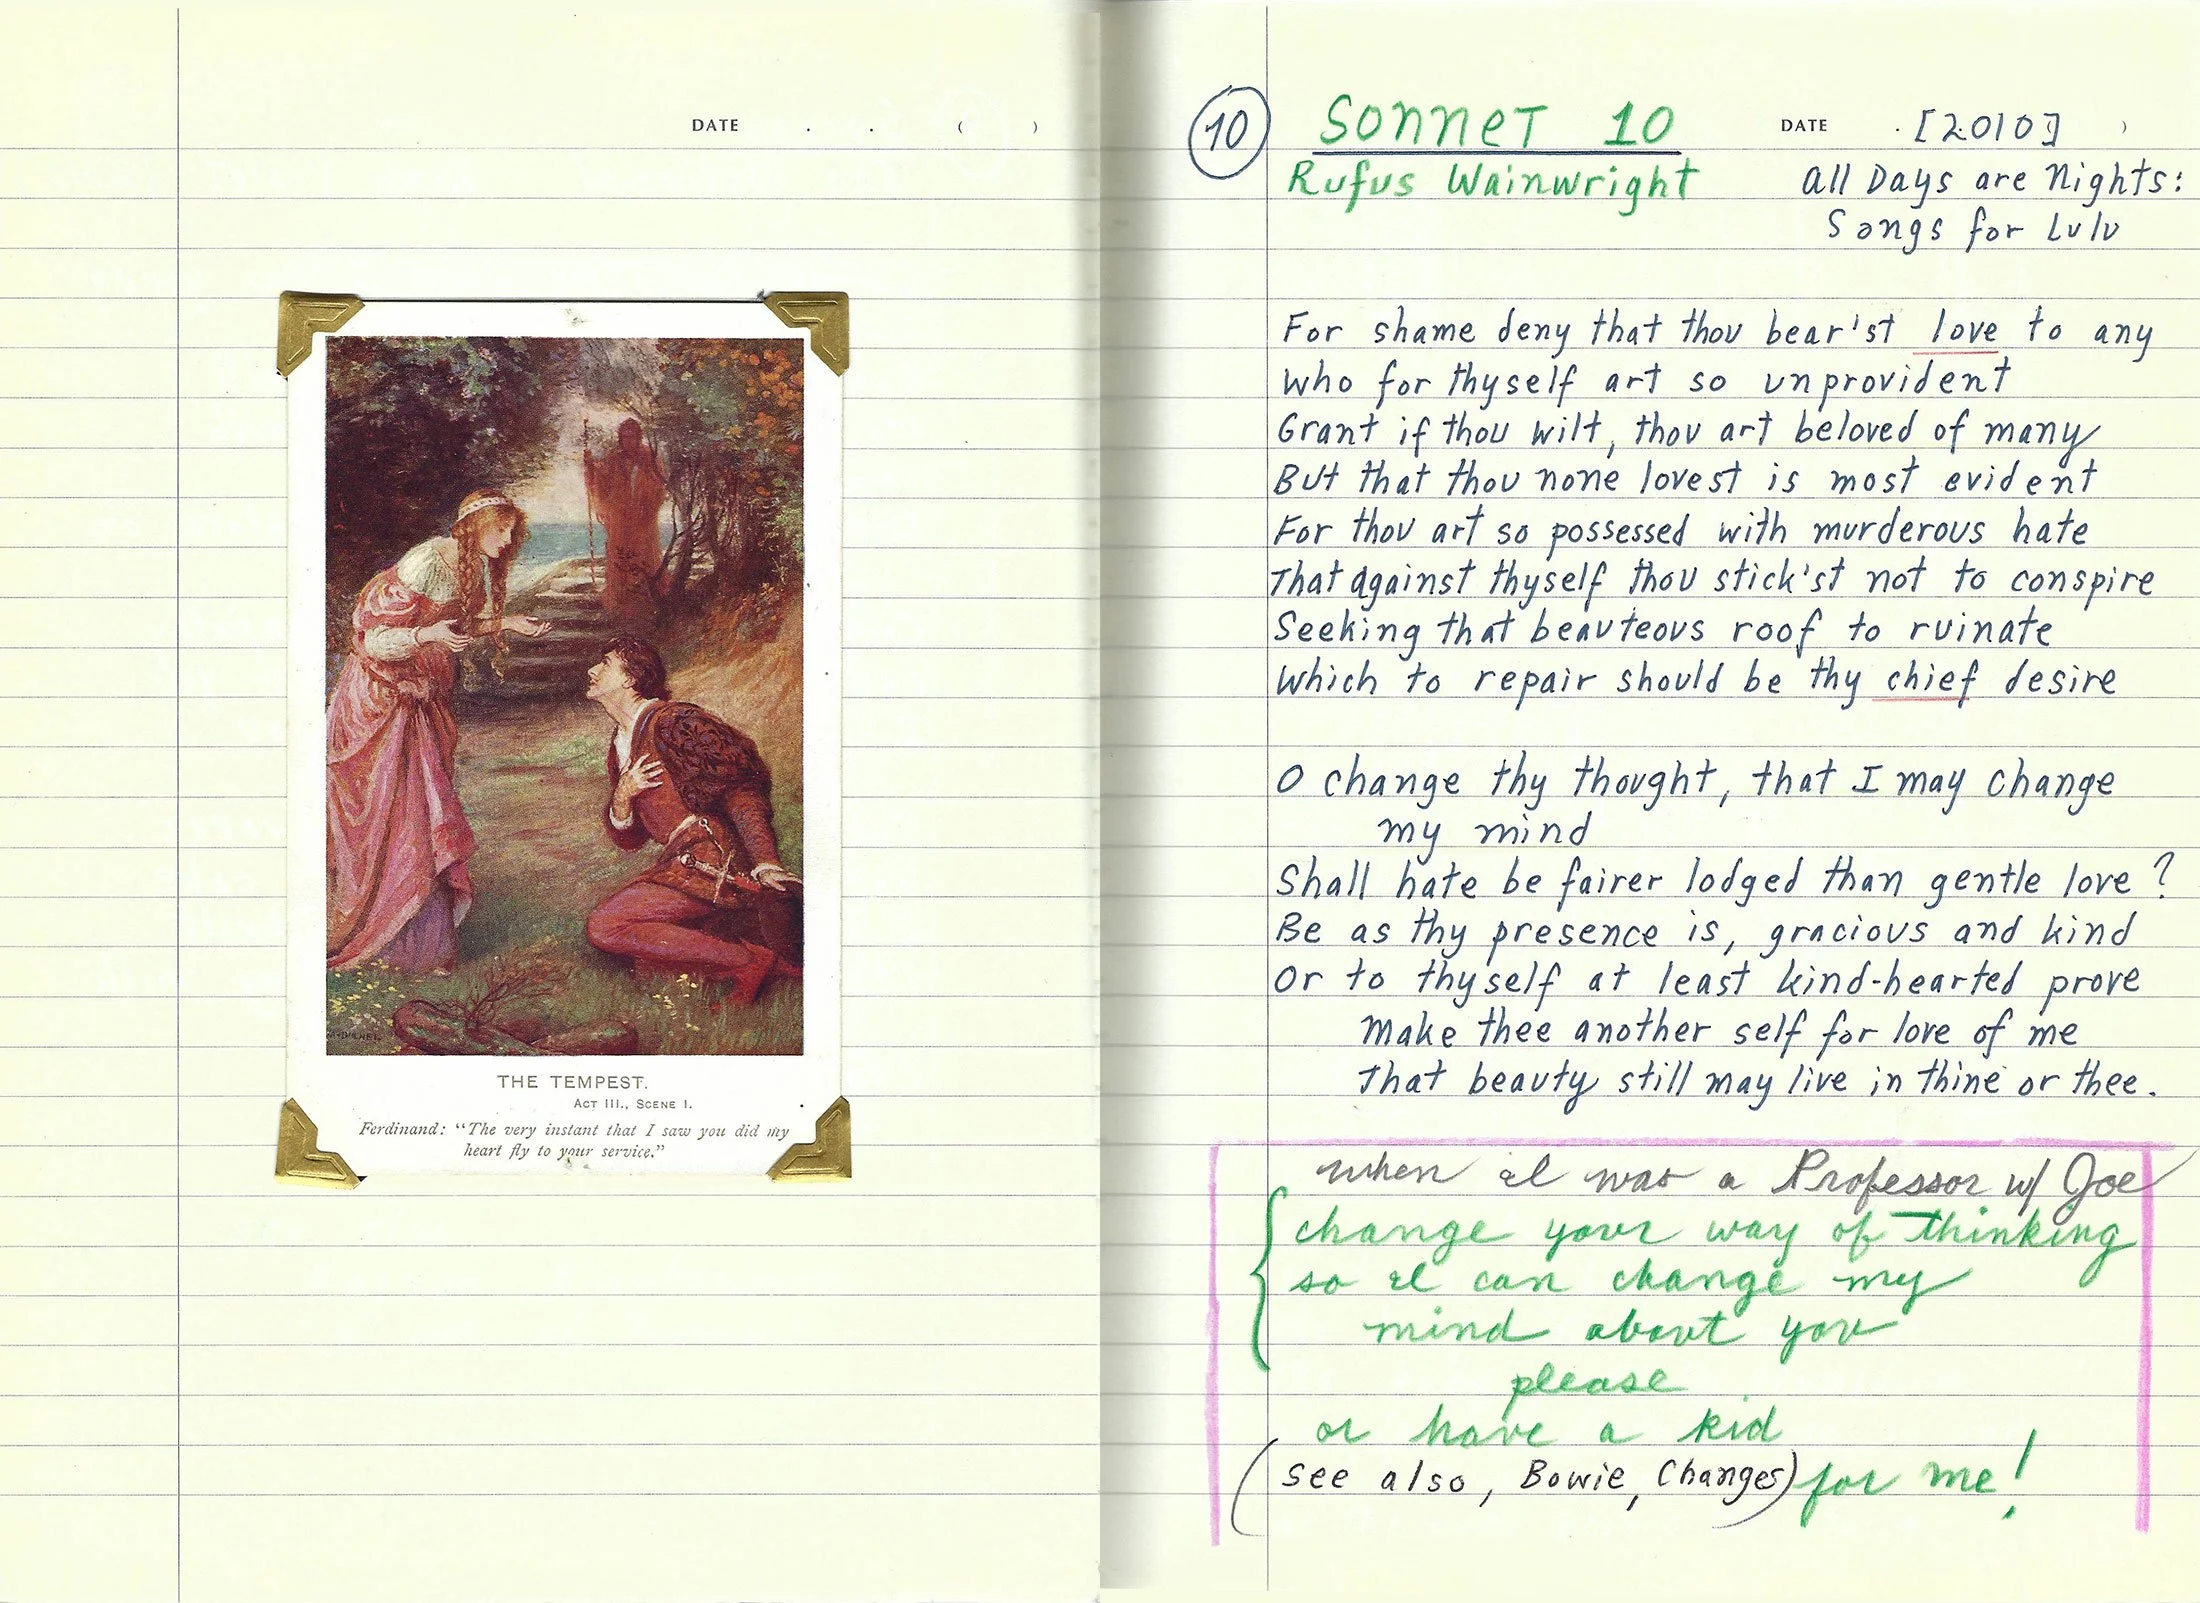 DATE . . ( )
THE TEMPEST.
ACT III., SCENE I.
Ferdinand: "The very instant that I saw you did my
heart fly to your service."
10
SONNET 10
DATE . [2010] )
Rufus Wainwright
All Days are Nights:
Songs for Lulu
For shame deny that thou bear'st love to any
Who for thyself art so unprovident
Grant if thou wilt, thou art beloved of many
But that thou none lovest is most evident
For thou art so possessed with murderous hate
That against thyself thou stick'st not to conspire
Seeking that beauteous roof to ruinate
Which to repair should be thy chief desire
O change thy thought, that I may change
my mind
Shall hate be fairer lodged than gentle love?
Be as thy presence is, gracious and kind
Or to thyself at least kind-hearted prove
Make thee another self for love of me
That beauty still may live in thine or thee.
when I was a Professor w/ Joe
change your way of thinking
so I can change my
mind about you
please
or have a kid
(see also, Bowie, Changes) for me!